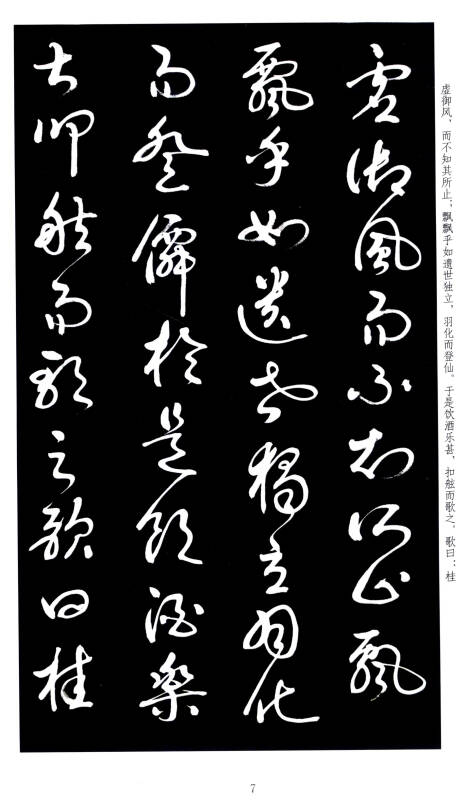 虚御风，而不知其所止；飘飘乎如遗世独立，羽化而登仙。于是饮酒乐甚，扣舷而歌之。歌曰：桂
虚御風而不知所止飄
飄乎如遺世獨立羽化
而登僊於是飲酒樂
甚叩舷而歌之歌曰桂
7